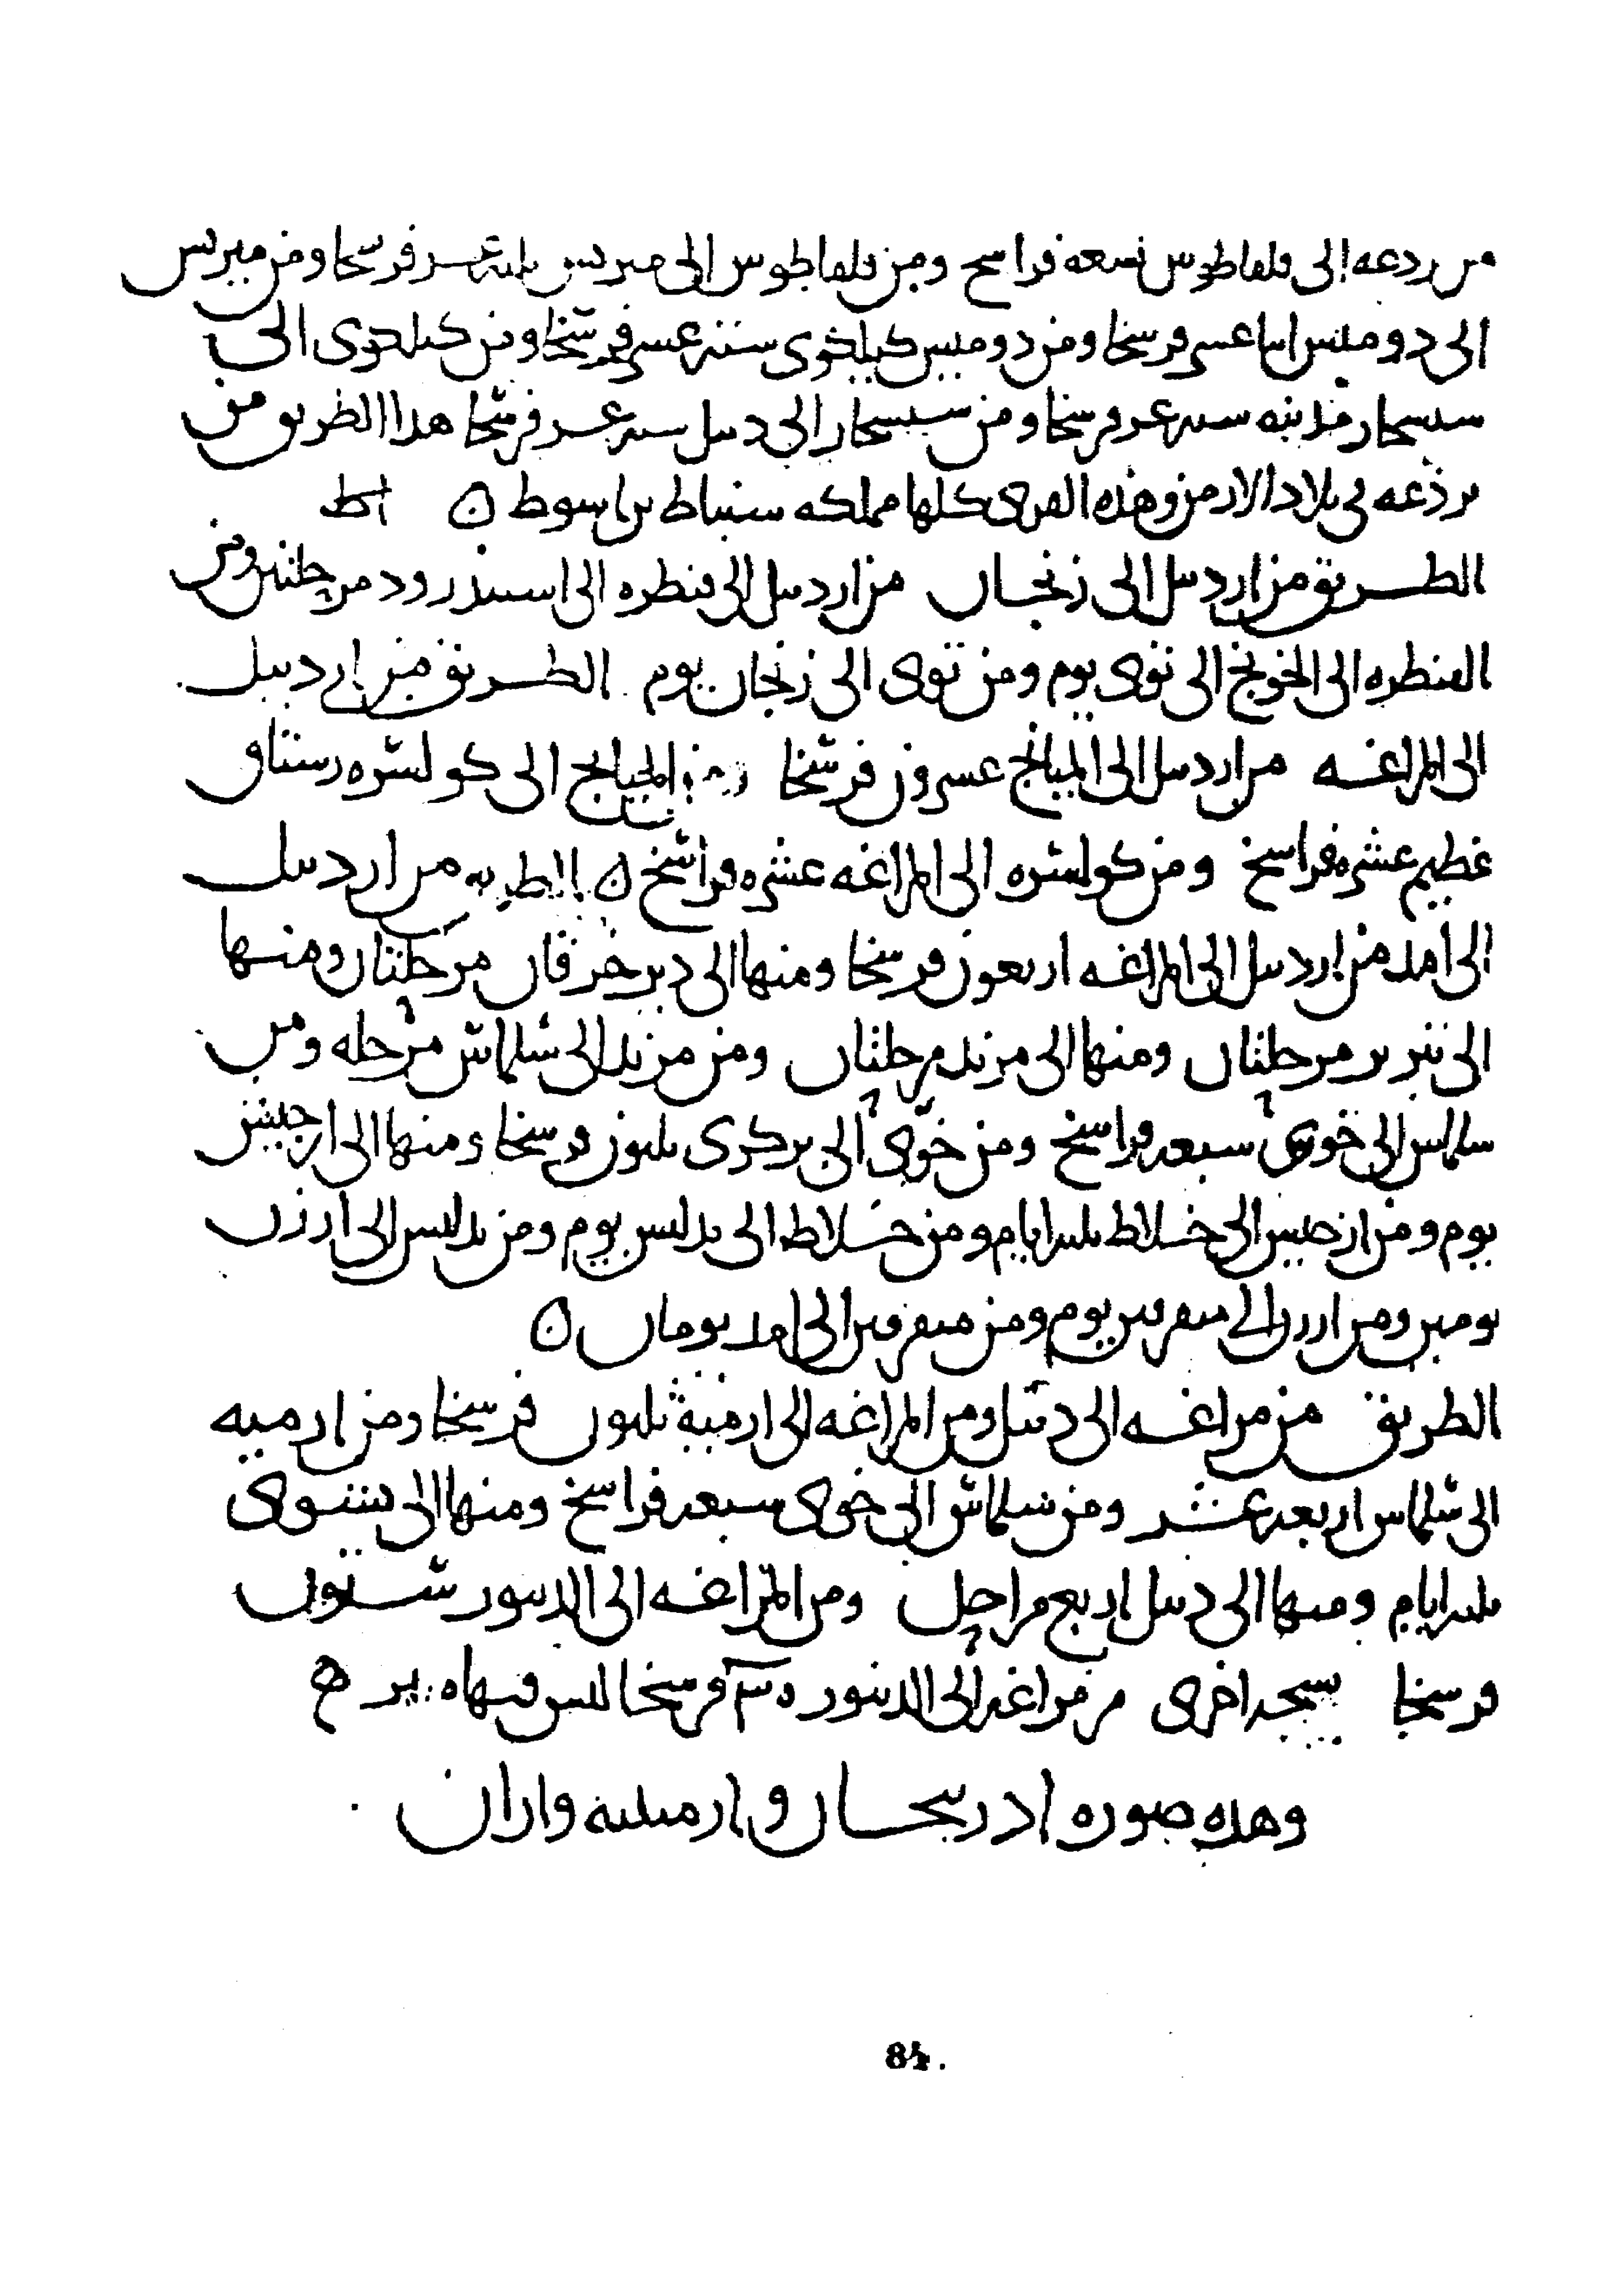 من بردعه الى قلقاطوس تسعه فراسخ ومن قلقاطوس الى متريس ثلثة عشر فرسخا ومن متريس
الى دوميس اثنا عشر فرسخا ومن دوميس كيلكوى ستة عشر فرسخا ومن كيلكوى الى
سيسجان مدينه ستة عشر فرسخا ومن سيسجان الى دبيل ستة عشر فرسخا هذا الطريق من
برذعه فى بلاد الارمن وهذه القرى كلها مملكه سنباط بن اسوط
الطريق من اردبيل الى زنجان من اردبيل الى قنطره الى اسبيذرود مرحلتين ومن
القنطره الى الخونج الى توى يوم ومن توى الى زنجان يوم الطريق من اردبيل
الى المراغه من اردبيل الى الميانج عشرون فرسخا الميانج الى كولسره رستاق
عظيم عشره فراسخ ومن كولسره الى المراغه عشره فراسخ من اردبيل
الى امد من اردبيل الى المراغه اربعون فرسخا ومنها الى دير خرقان مرحلتان ومنها
الى تبريز مرحلتان ومنها الى مرند مرحلتان ومن مرند الى سلماس مرحله ومن
سلماس الى خوى سبعه فراسخ ومن خوى الى بركرى ثلثون فرسخا ومنها الى ارجيش
يوم ومن ارجيش الى خلاط ثلثه ايام ومن خلاط الى بدليس يوم ومن بدليس الى ارزن
يومين ومن ارزن الى ميفرقين يوم ومن ميفرقين الى امد يومان
الطريق من مراغه الى دبيل ومن المراغه الى ارمية ثلثون فرسخا ومن ارميه
الى سلماس اربعه عشر ومن سلماس الى خوى سبعه فراسخ ومنها الى نشوى
ثلثه ايام ومنها الى دبيل اربع مراحل ومن المراغه الى الدينور ستون
فرسخا نسخه اخرى من مراغه الى الدينور فرسخا ليس فيها
وهذه صوره اذربيجان وارمينيه واران
84.